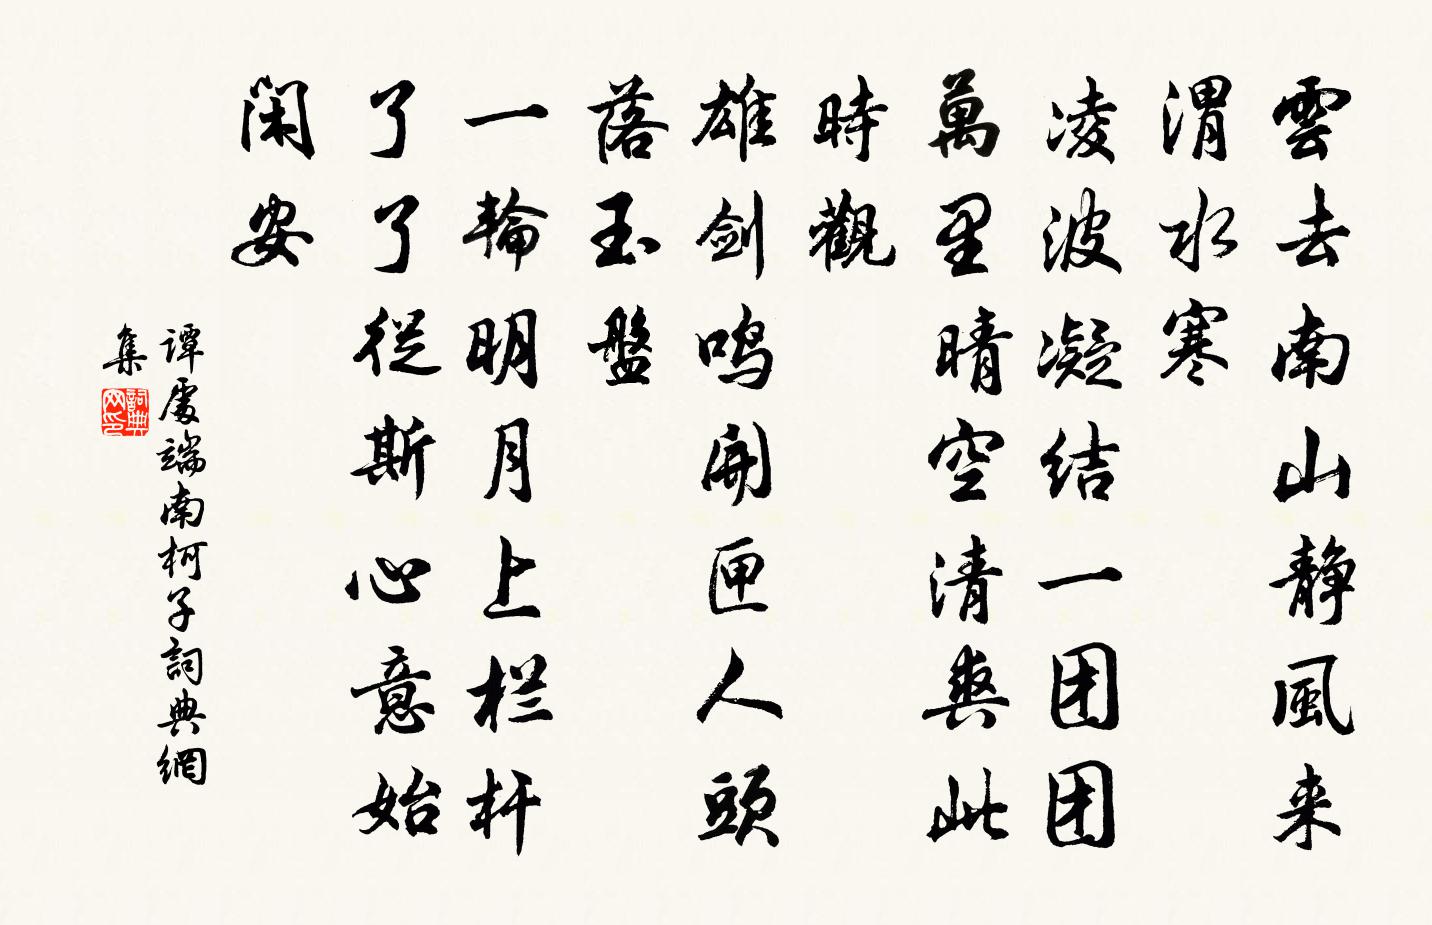 雲去南山静風来
渭水寒
凌波凝结一团团
萬里晴空清爽此
時觀
雄剑鸣開匣人頭
落玉盤
一輪明月上栏杆
了了從斯心意始
闲安
譚處端南柯子詞典網
集
詞典
网印